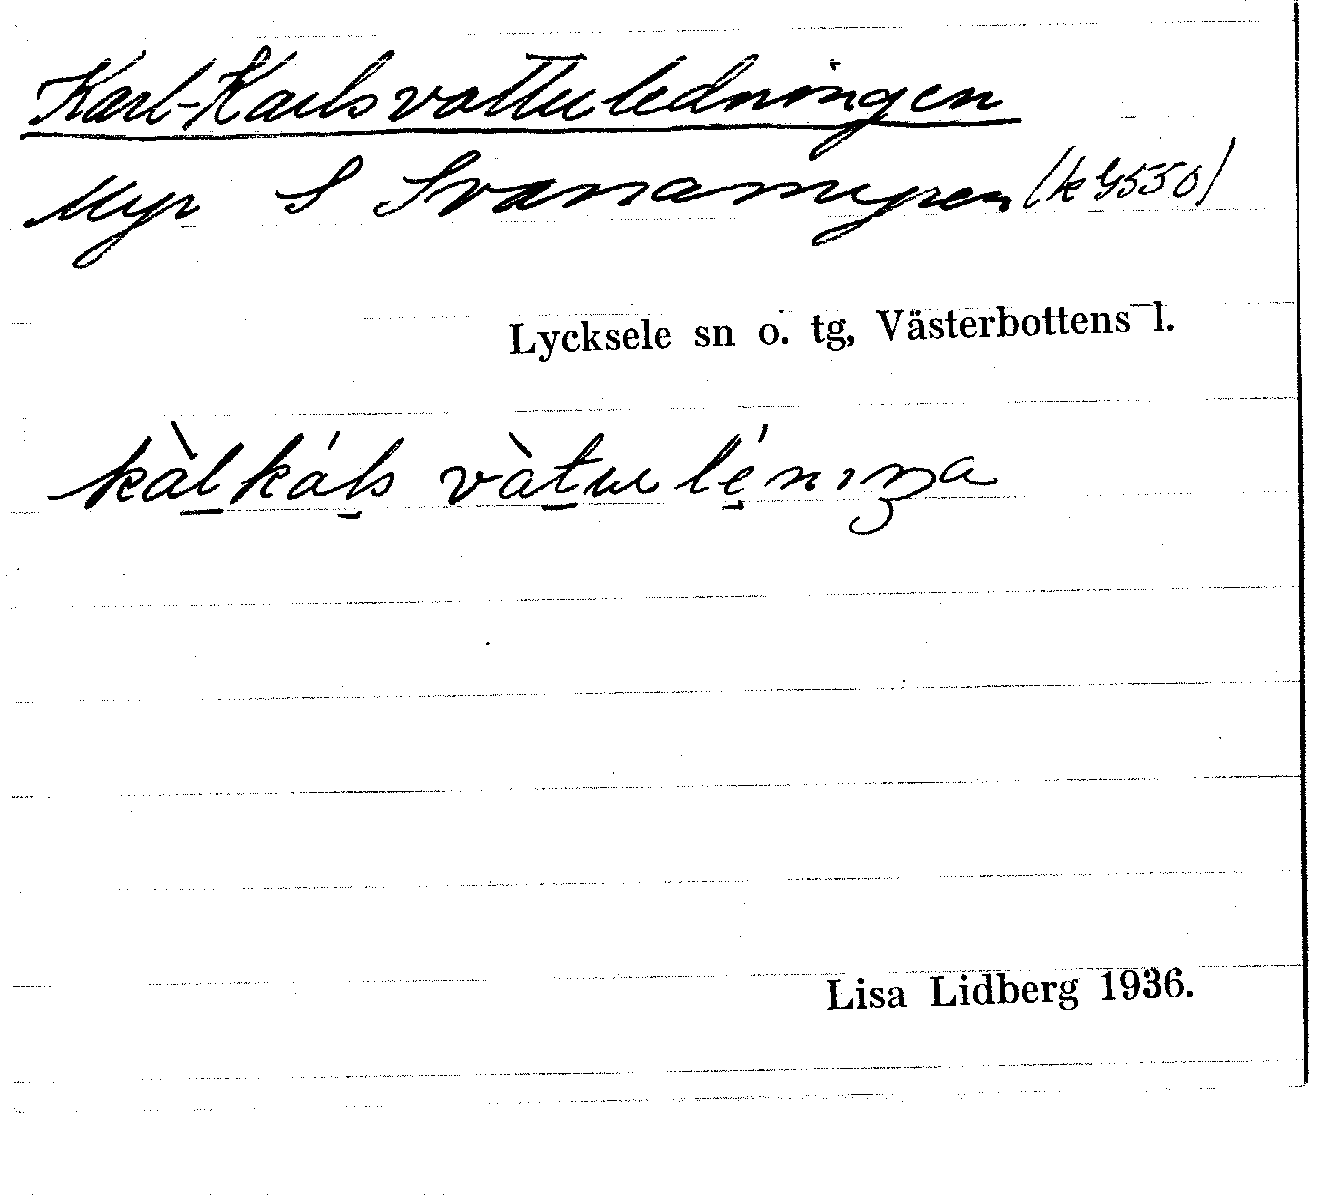 Karl-Karlsvattuledningen
Myr S Svanamyren (k 4550)
Lycksele sn o. tg, Västerbottens l.
kàlkáls vàtuléniŋa
Lisa Lidberg 1936.